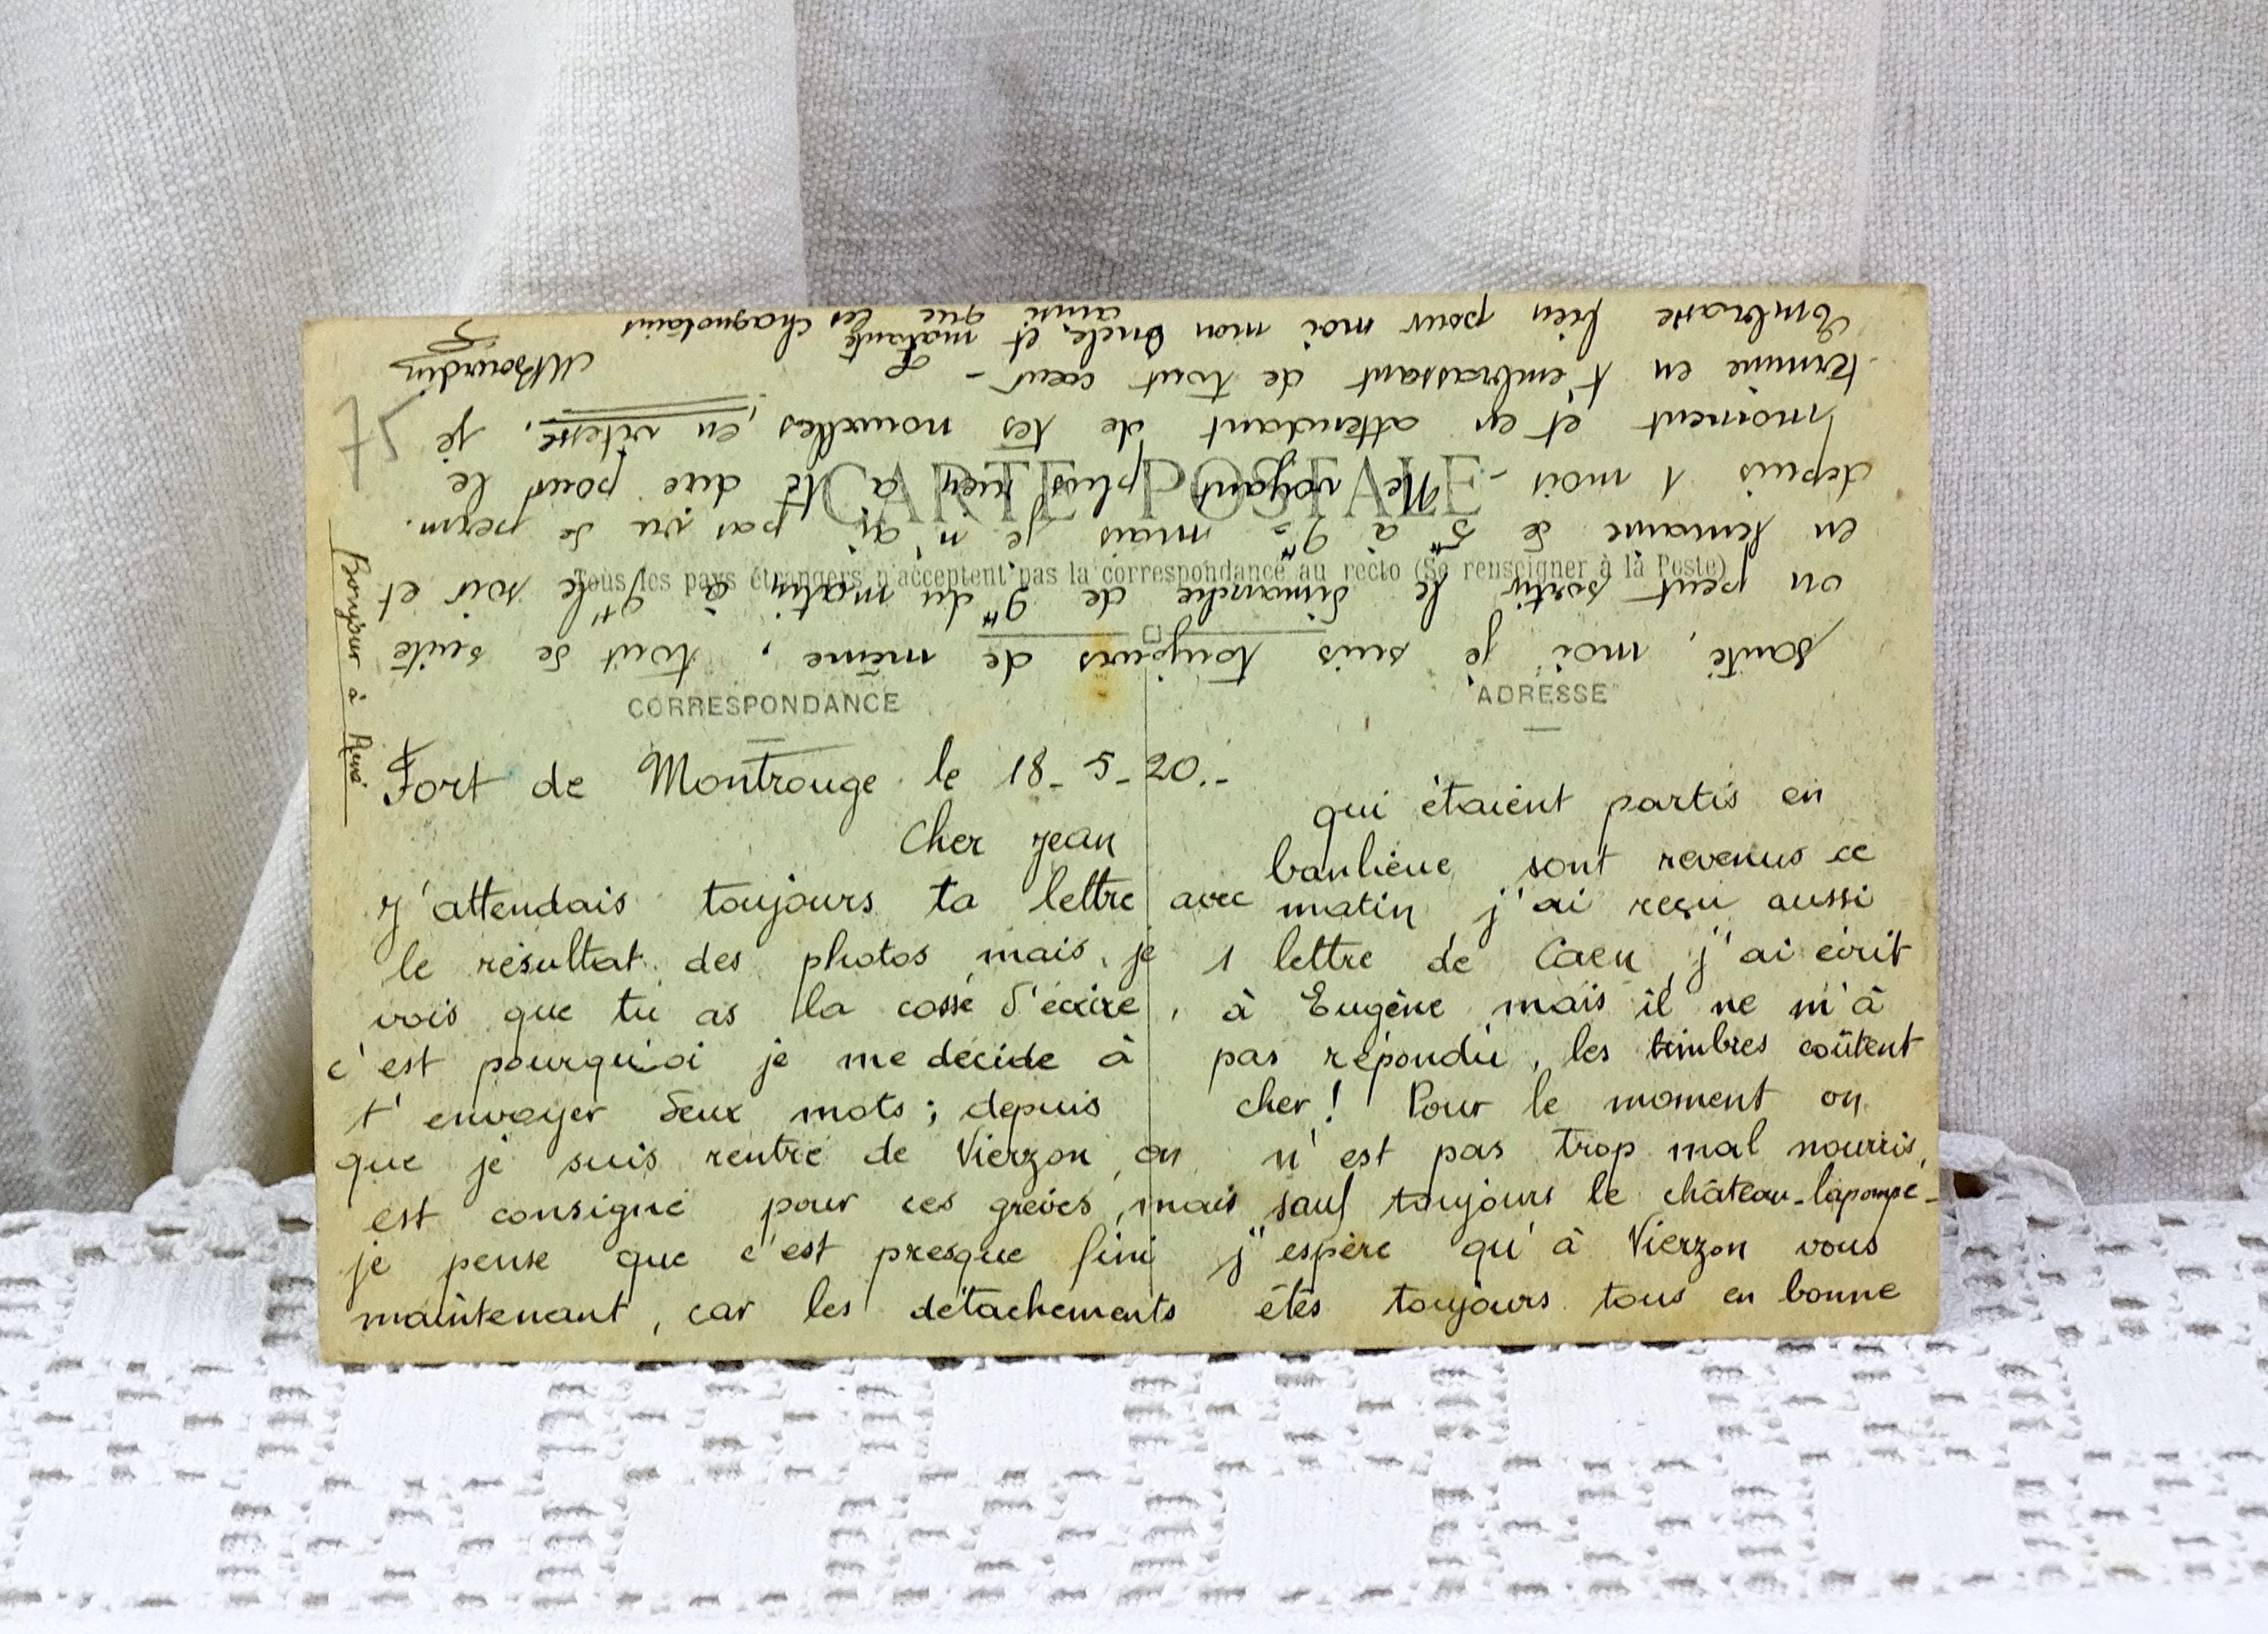 Fort de Montrouge le 18-5-20.-
Cher Jean
J'attendais toujours ta lettre avec
le résultat des photos mais, je
vois que tu as la cosse d'écrire,
c'est pourquoi je me décide à
t'envoyer deux mots; depuis
que je suis rentré de Vierzon, on
est consigné pour ces grèves, mais
je pense que c'est presque fini
maintenant, car les détachements
qui étaient partis en
banlieue sont revenus ce
matin j'ai reçu aussi
1 lettre de Caen, j'ai écrit
à Eugène mais il ne m'à
pas répondu, les timbres coûtent
cher! Pour le moment on
n'est pas trop mal nourris,
sauf toujours le château-lapompe-
j'espère qu'à Vierzon vous
êtes toujours tous en bonne
santé, moi je suis toujours de même, tout de suite
on peut sortir le dimanche de 9h du matin à 9h le soir et
en semaine de 5h à 9h- mais je n'ai pas vu de perm.
depuis 1 mois - Ne voyant plus rien a te dire pour le
moment et en attendant de tes nouvelles, en vitesse, je
termine en t'embrassant de tout cœur -
Embrasse bien pour moi mon Oncle, et matante
ainsi que les
MBourdin
Bonjour à René
75
CARTE POSTALE
Tous les pays étrangers n'acceptent pas la correspondance au recto (Se renseigner à la Poste)
CORRESPONDANCE
ADRESSE